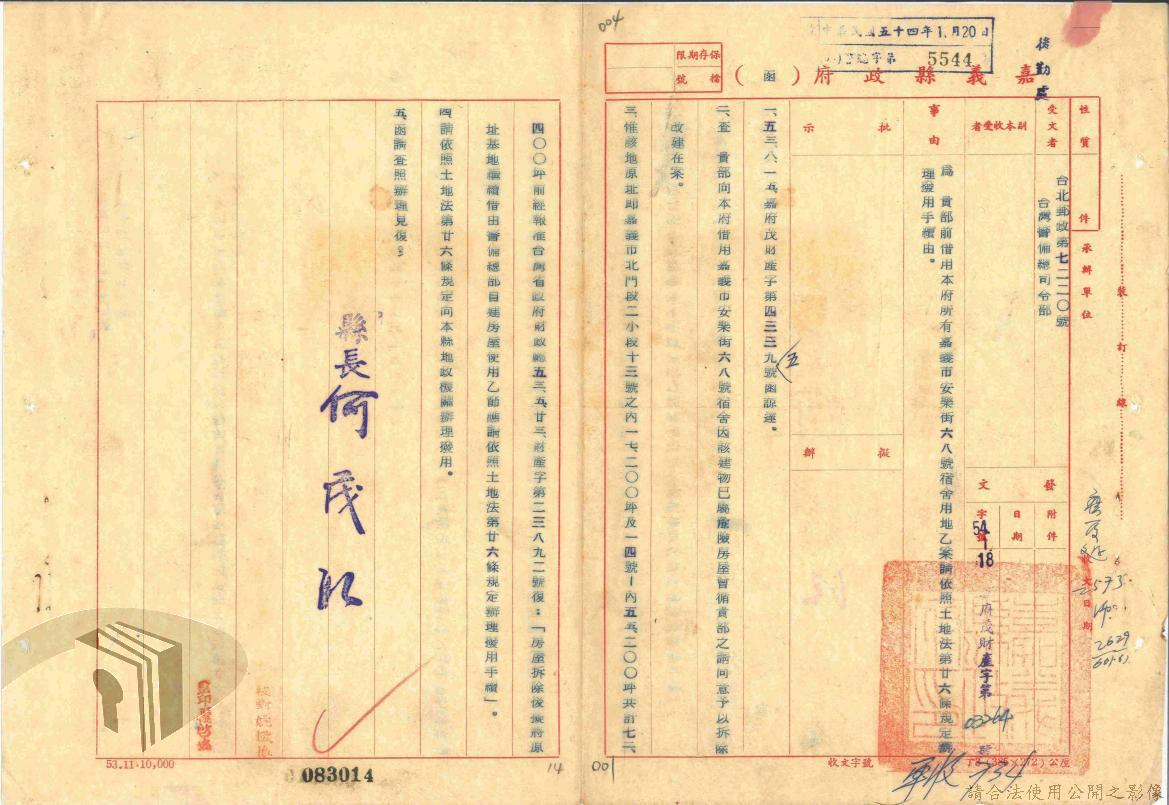 004
中華民國五十四年1.月20日
字第 5544
後勤處
嘉義縣政府（函）
保存期限
檔號
性質
件
受文者
副本收受者
台北郵政第七二二〇號
台灣警備總司令部
承辦單位
裝訂線
事由
為　貴部前借用本府所有嘉義市安樂街六八號宿舍用地乙案請依照土地法第廿六條規定辦
理撥用手續由。
批示
擬辦
發文
附件
日期
字號
54 1 18
府茂財產字第
03264
號
收文日期
一、五三、八、一五、嘉府茂財產字第四三三九號函諒達。
五
二、查　貴部向本府借用嘉義市安樂街六八號宿舍因該建物已屬危險房屋曾循貴部之請同意予以拆除
改建在案。
三、惟該地原址即嘉義市北門段二小段十三號之內一七、二〇〇坪及一四號–內五五、二〇〇坪共計七二、
四〇〇坪前經報准台灣省政府財政廳五三、五、廿三、財產字第二三八九二號復：「房屋拆除後擬將原
址基地繼續借由警備總部自建房屋使用乙節應請依照土地法第廿六條規定辦理撥用手續」。
四、請依照土地法第廿六條規定向本縣地政機關辦理撥用。
五、函請查照辦理見復。
縣長何茂取
監印
校對
收文字號
公厘
53.11.10,000
083014
14
001
2573
2629
請合法使用公開之影像